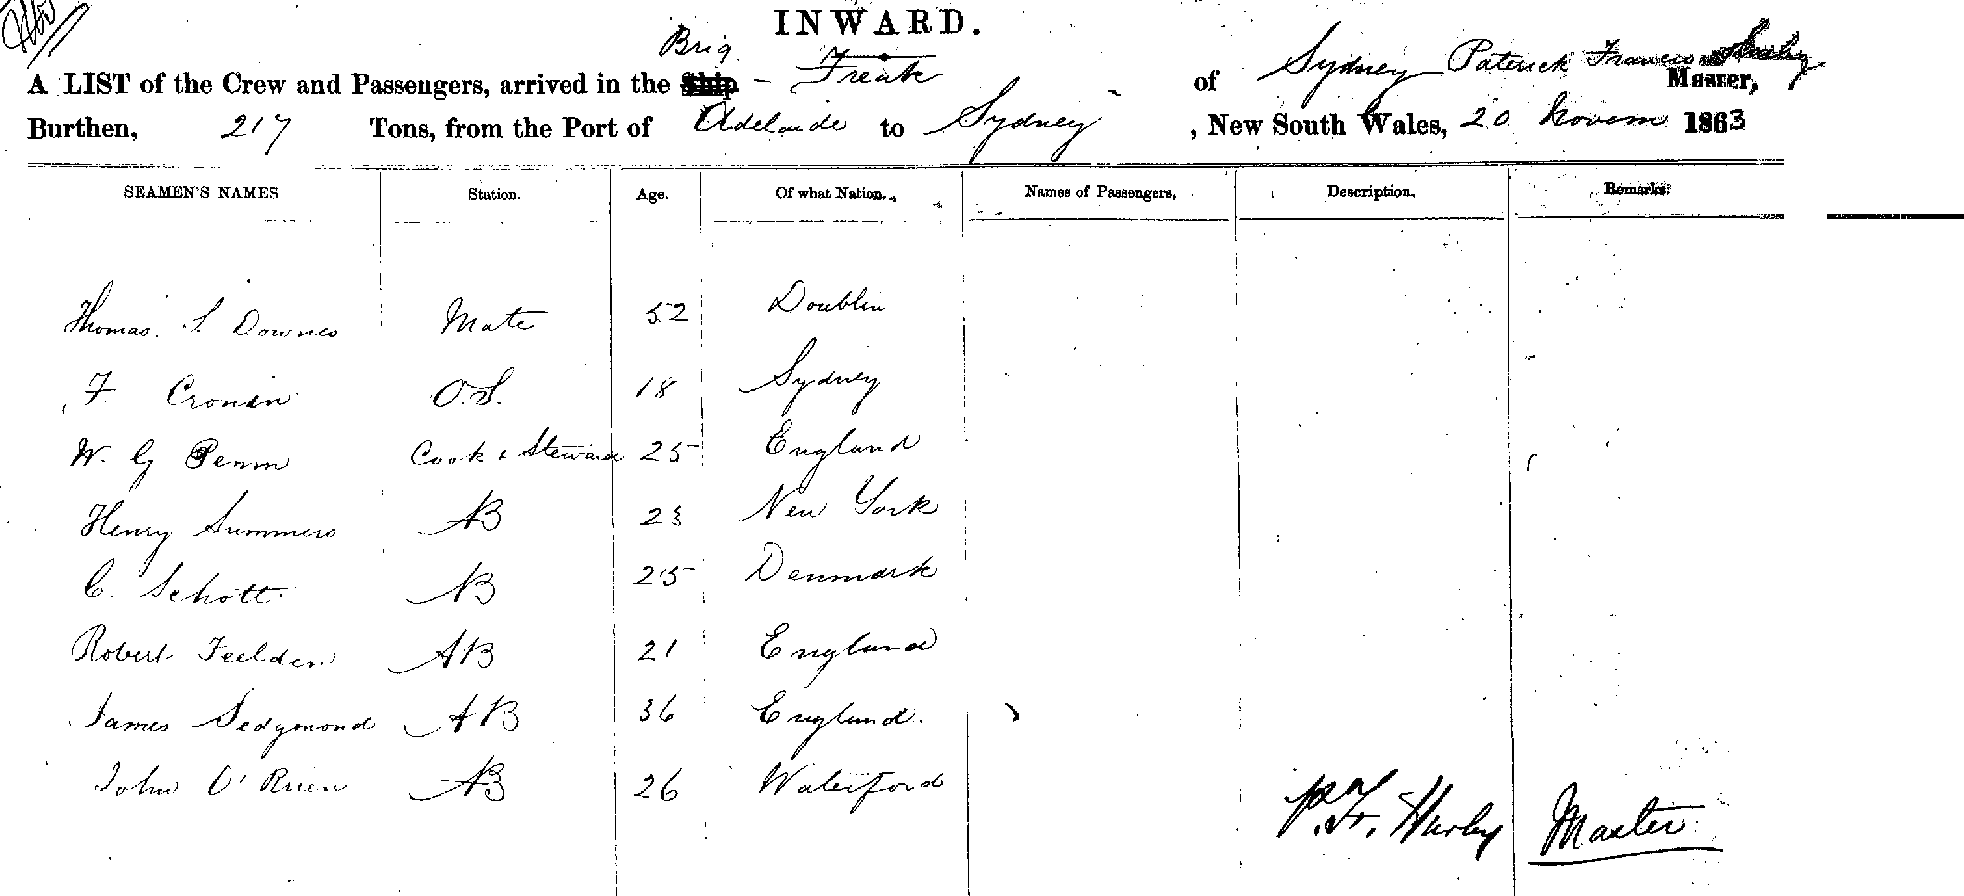 INWARD.
Brig
A LIST of the Crew and Passengers, arrived in the Ship - Freak of Sydney Patrick Francis Master,
Burthen, 217 Tons, from the Port of Adelaide to Sydney, New South Wales, 20 Novem 1863
SEAMEN'S NAMES Station. Age. Of what Nation. Names of Passengers. Description. Remarks.
Thomas. S. Downes Mate 52 Doublin
F Cronin O.S. 18 Sydney
W. G Penm Cook & Steward 25 England
Henry Summers AB 23 New York
C. Schott AB 25 Denmark
Robert Feelden AB 21 England
James Sedgmond AB 36 England.
John O'Brien AB 26 Waterford
P. Fr. Hurly Master